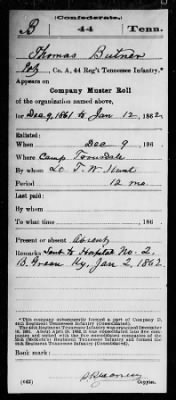 (Confederate.)
B 44 Tenn.
Thomas Butner
Co. A, 44 Reg't Tennessee Infantry.*
Appears on
Company Muster Roll
of the organization named above,
for Dec 9, 1861 to Jan 12, 1862
Enlisted:
When Dec 9, 186 .
Where Camp Trousdale
By whom T. W.
Period 12 mo.
Last paid:
By whom
To what time , 186 .
Present or absent Absent
Remarks Sent to Hospital No. 2,
B. Green Ky, Jan 2, 1862.
*This company subsequently formed a part of Company
44th Regiment Tennessee Infantry (Consolidated).
Book mark:
(642) Copyist.